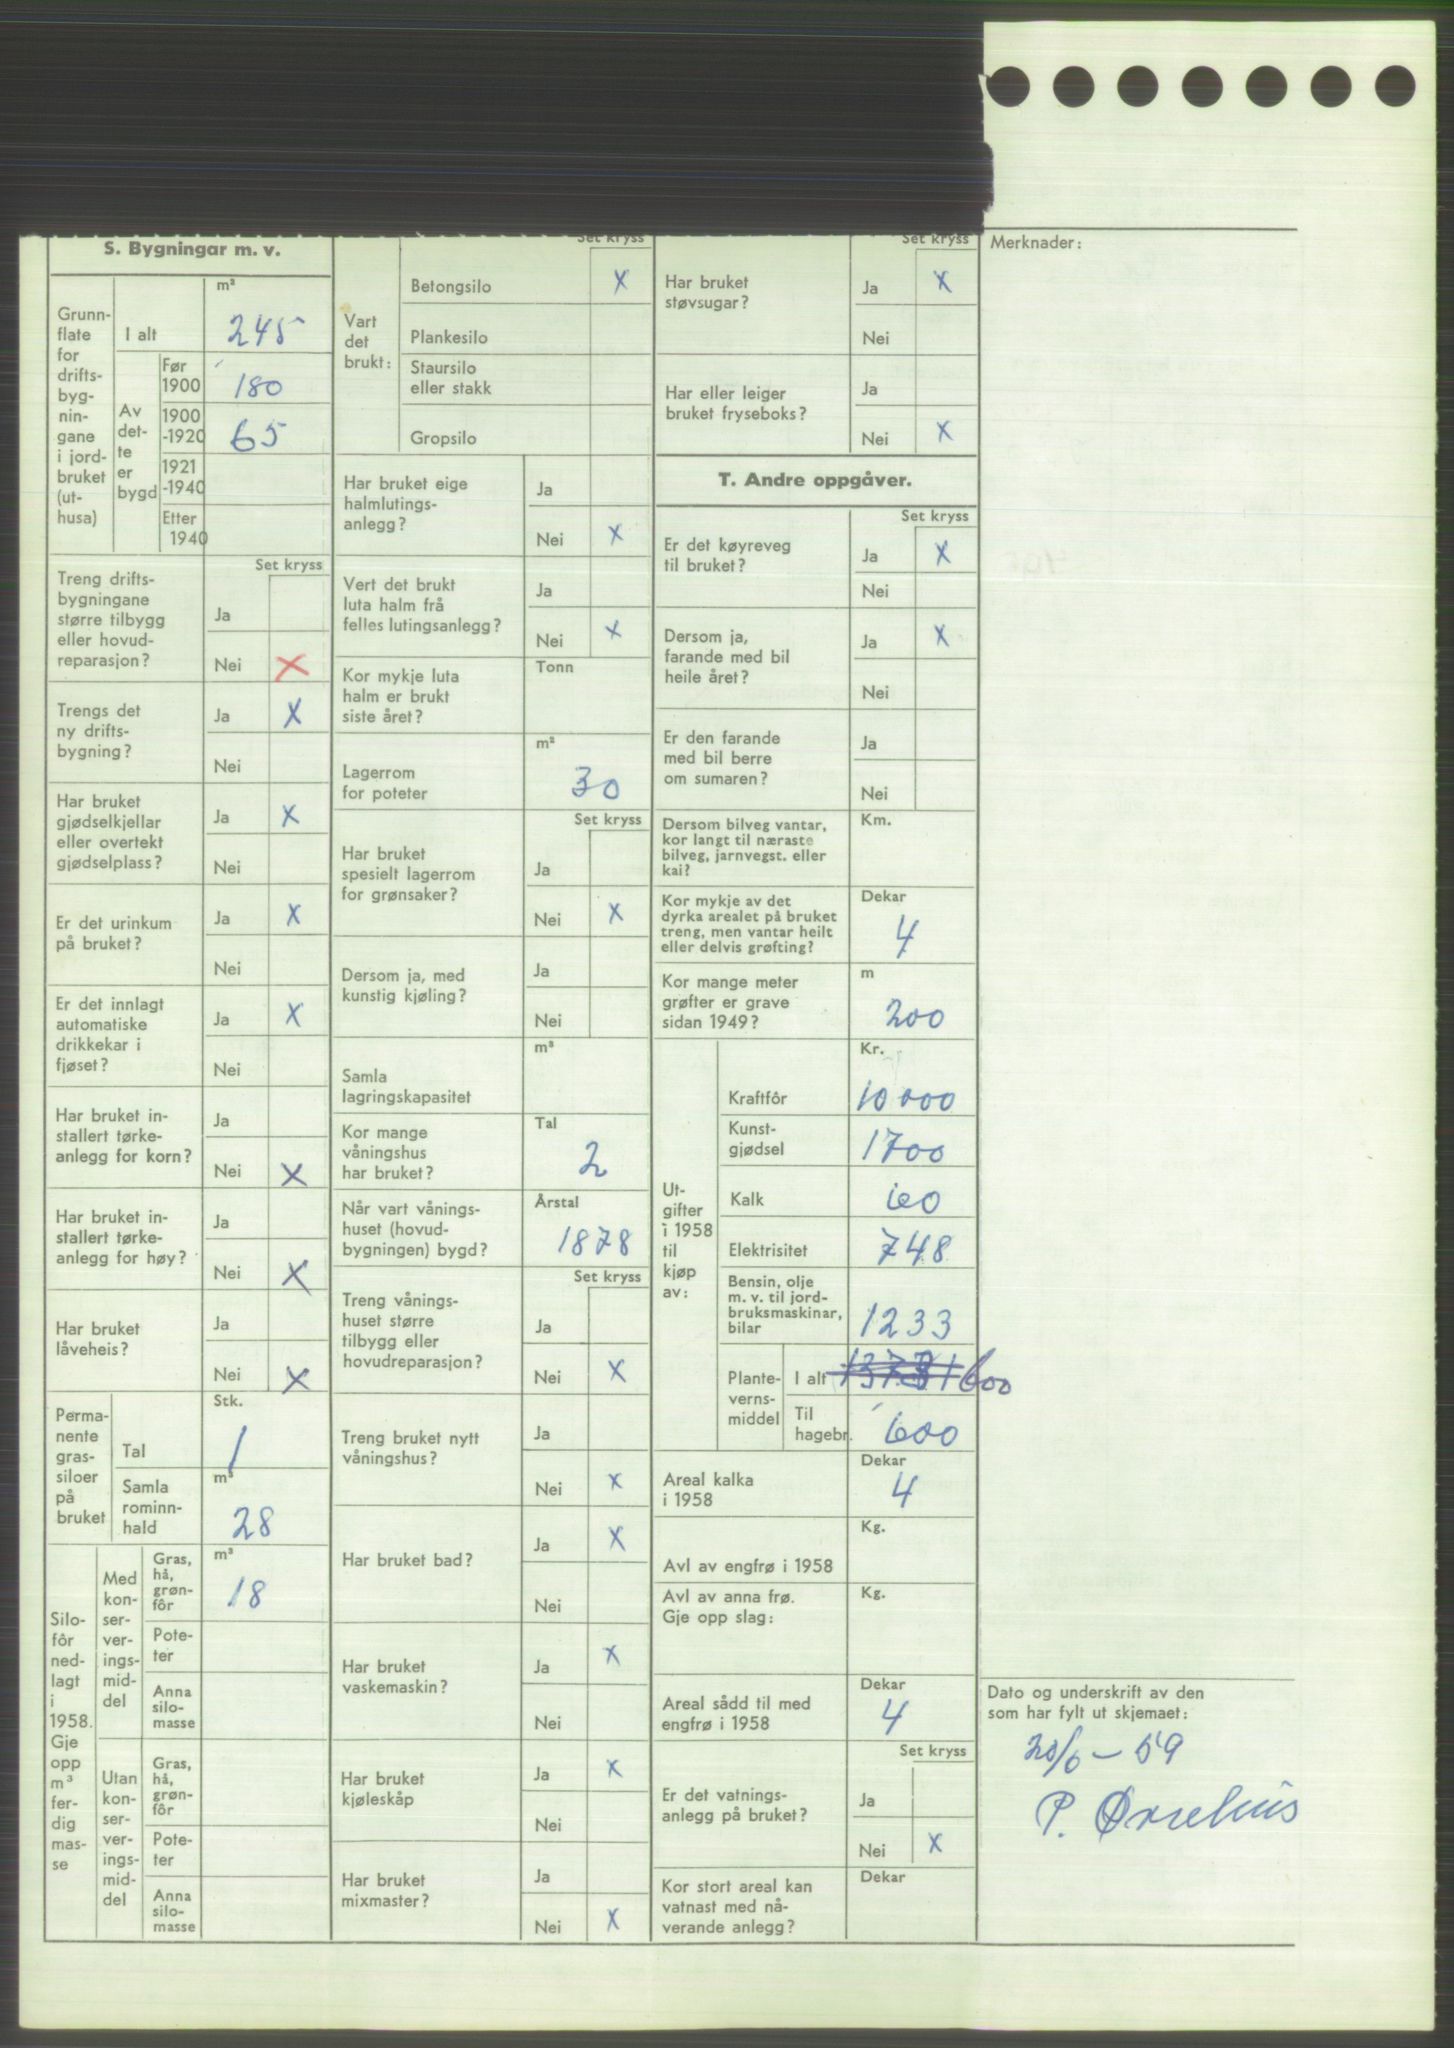 S. Bygningar m. v.
Grunn-
flate
for
drifts-
byg-
nin-
gane
i jord-
bruket
(ut-
husa)
m²
I alt 245
Av
det-
te
er
bygd
Før
1900 180
1900
-1920 65
1921
-1940
Etter
1940
Set kryss
Treng drifts-
bygningane
større tilbygg
eller hovud-
reparasjon?
Ja
Nei X
Trengs det
ny drifts-
bygning?
Ja X
Nei
Har bruket
gjødselkjellar
eller overtekt
gjødselplass?
Ja X
Nei
Er det urinkum
på bruket?
Ja X
Nei
Er det innlagt
automatiske
drikkekar i
fjøset?
Ja X
Nei
Har bruket in-
stallert tørke-
anlegg for korn?
Ja
Nei X
Har bruket in-
stallert tørke-
anlegg for høy?
Ja
Nei X
Har bruket
låveheis?
Ja
Nei X
Perma-
nente
gras-
siloer
på
bruket
Stk.
Tal 1
m³
Samla
rominn-
hald 28
Silo-
fôr
ned-
lagt
i
1958.
Gje
opp
m³
fer-
dig
mas-
se
Med
kon-
ser-
ver-
ings-
mid-
del
m³
Gras,
hå,
grøn-
fôr 18
Pote-
ter
Anna
silo-
masse
Utan
kon-
ser-
ver-
ings-
mid-
del
Gras,
hå,
grøn-
fôr
Pote-
ter
Anna
silo-
masse
Set kryss
Vart
det
brukt:
Betongsilo X
Plankesilo
Staursilo
eller stakk
Gropsilo
Har bruket eige
halmlutings-
anlegg?
Ja
Nei X
Vert det brukt
luta halm frå
felles lutingsanlegg?
Ja
Nei X
Kor mykje luta
halm er brukt
siste året?
Tonn
Lagerrom
for poteter
m²
30
Set kryss
Har bruket
spesielt lagerrom
for grønsaker?
Ja
Nei X
Dersom ja, med
kunstig kjøling?
Ja
Nei
Samla
lagringskapasitet
m³
Kor mange
våningshus
har bruket?
Tal
2
Når vart vånings-
huset (hovud-
bygningen) bygd?
Årstal
1878
Set kryss
Treng vånings-
huset større
tilbygg eller
hovudreparasjon?
Ja
Nei X
Treng bruket nytt
våningshus?
Ja
Nei X
Har bruket bad?
Ja X
Nei
Har bruket
vaskemaskin?
Ja X
Nei
Har bruket
kjøleskåp
Ja X
Nei
Har bruket
mixmaster?
Ja
Nei X
Set kryss
Har bruket
støvsugar?
Ja X
Nei
Har eller leiger
bruket fryseboks?
Ja
Nei X
T. Andre oppgåver.
Set kryss
Er det køyreveg
til bruket?
Ja X
Nei
Dersom ja,
farande med bil
heile året?
Ja X
Nei
Er den farande
med bil berre
om sumaren?
Ja
Nei
Dersom bilveg vantar,
kor langt til næraste
bilveg, jarnvegst. eller
kai?
Km.
Kor mykje av det
dyrka arealet på bruket
treng, men vantar heilt
eller delvis grøfting?
Dekar
4
Kor mange meter
grøfter er grave
sidan 1949?
m
200
Ut-
gifter
i 1958
til
kjøp
av:
Kr.
Kraftfôr 10 000
Kunst-
gjødsel 1700
Kalk 60
Elektrisitet 748
Bensin, olje
m. v. til jord-
bruksmaskinar,
bilar 1233
Plante-
verns-
middel
I alt 600
Til
hagebr. 600
Areal kalka
i 1958
Dekar
4
Avl av engfrø i 1958
Kg.
Avl av anna frø.
Gje opp slag:
Kg.
Areal sådd til med
engfrø i 1958
Dekar
4
Set kryss
Er det vatnings-
anlegg på bruket?
Ja
Nei X
Kor stort areal kan
vatnast med nå-
verande anlegg?
Dekar
Merknader:
Dato og underskrift av den
som har fylt ut skjemaet:
20/6 - 59
P.